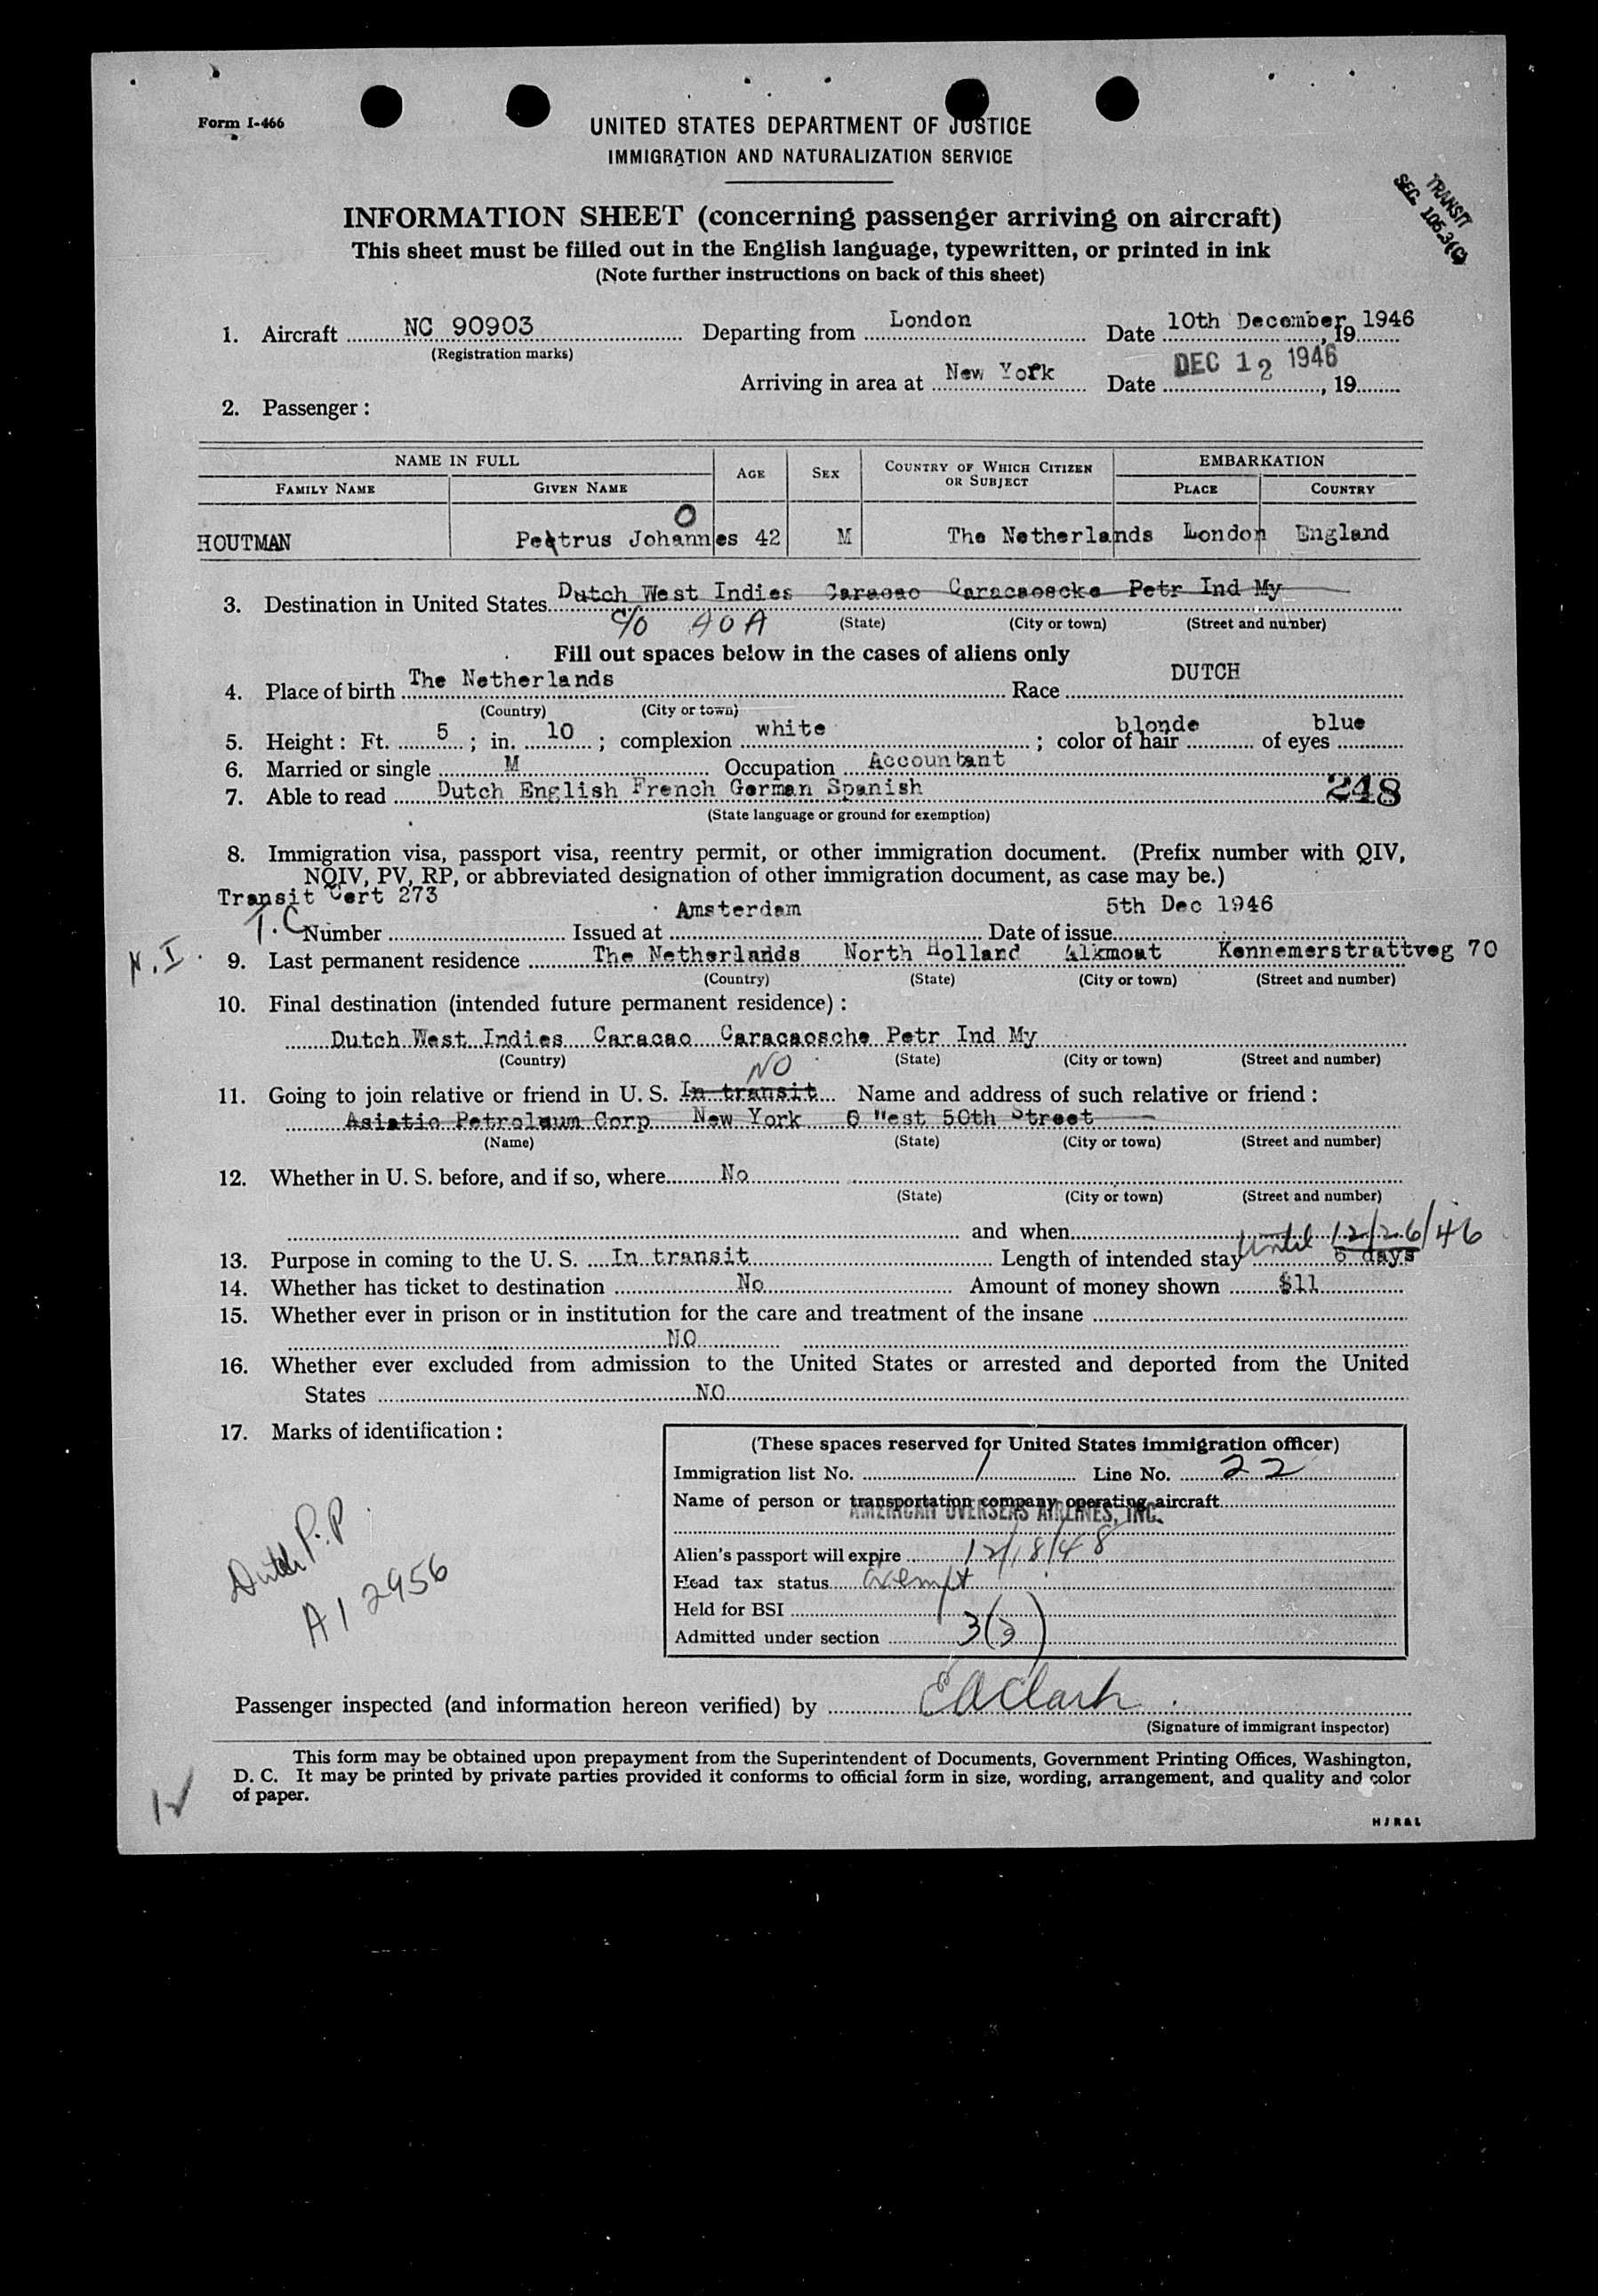 Form I-466
UNITED STATES DEPARTMENT OF JUSTICE
IMMIGRATION AND NATURALIZATION SERVICE
TRANSIT
SEC. 105.3(C)
INFORMATION SHEET (concerning passenger arriving on aircraft)
This sheet must be filled out in the English language, typewritten, or printed in ink
(Note further instructions on back of this sheet)
1. Aircraft NC 90903 Departing from London Date 10th December, 19 1946
(Registration marks)
Arriving in area at New York Date DEC 12 1946, 19
2. Passenger:
NAME IN FULL AGE SEX COUNTRY OF WHICH CITIZEN OR SUBJECT EMBARKATION
FAMILY NAME GIVEN NAME PLACE COUNTRY
O
HOUTMAN Petrus Johannes 42 M The Netherlands London England
3. Destination in United States Dutch West Indies Caracao Caracaosche Petr Ind My
c/o AOA (State) (City or town) (Street and number)
Fill out spaces below in the cases of aliens only
4. Place of birth The Netherlands Race DUTCH
(Country) (City or town)
5. Height: Ft. 5; in. 10; complexion white; color of hair blonde of eyes blue
6. Married or single M Occupation Accountant
7. Able to read Dutch English French German Spanish 248
(State language or ground for exemption)
8. Immigration visa, passport visa, reentry permit, or other immigration document. (Prefix number with QIV,
NQIV, PV, RP, or abbreviated designation of other immigration document, as case may be.)
Transit Cert 273
T.C Number Issued at Amsterdam Date of issue 5th Dec 1946
N.I. 9. Last permanent residence The Netherlands North Holland Alkmoat Kennemerstrattveg 70
(Country) (State) (City or town) (Street and number)
10. Final destination (intended future permanent residence):
Dutch West Indies Caracao Caracaosche Petr Ind My
(Country) (State) (City or town) (Street and number)
NO
11. Going to join relative or friend in U. S. In transit Name and address of such relative or friend:
Asiatic Petroleum Corp New York 6 West 50th Street
(Name) (State) (City or town) (Street and number)
12. Whether in U. S. before, and if so, where No
(State) (City or town) (Street and number)
and when
13. Purpose in coming to the U. S. In transit Length of intended stay until 12/26/46 6 days
14. Whether has ticket to destination No Amount of money shown $11
15. Whether ever in prison or in institution for the care and treatment of the insane
NO
16. Whether ever excluded from admission to the United States or arrested and deported from the United
States NO
17. Marks of identification:
Dutch P.P
A12956
(These spaces reserved for United States immigration officer)
Immigration list No. 1 Line No. 22
Name of person or transportation company operating aircraft
AMERICAN OVERSEAS AIRLINES, INC.
Alien's passport will expire 12/18/48
Head tax status exempt
Held for BSI
Admitted under section 3(3)
Passenger inspected (and information hereon verified) by E A Clark
(Signature of immigrant inspector)
This form may be obtained upon prepayment from the Superintendent of Documents, Government Printing Offices, Washington,
D. C. It may be printed by private parties provided it conforms to official form in size, wording, arrangement, and quality and color
of paper.
H J R & L